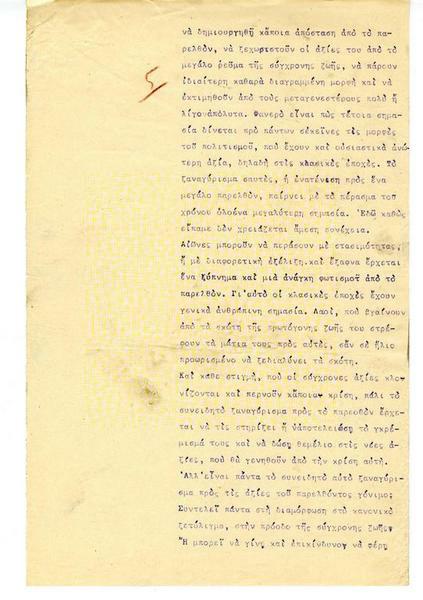 νὰ δημιουργηθῆ κάποια ἀπόσταση ἀπὸ τὸ πα-
ρελθόν, νὰ ξεχωριστοῦν οἱ ἀξίες του ἀπὸ τὸ
μεγάλο ρεῦμα τῆς σύγχρονης ζωῆς, νὰ πάρουν
ἰδιαίτερη καθαρὰ διαγραμμένη μορφὴ καὶ νὰ
ἐκτιμηθοῦν ἀπὸ τοὺς μεταγενεστέρους πολὺ ἢ
λίγο ἀπόλυτα. Φανερὸ εἶναι πὼς τέτοια σημα-
σία δίνεται πρὸ πάντων σ'ἐκεῖνες τὶς μορφὲς
τοῦ πολιτισμοῦ, ποὺ ἔχουν καὶ οὐσιαστικὰ ἀνώ-
τερη ἀξία, δηλαδὴ στὶς κλασικὲς ἐποχές. Τὸ
ξαναγύρισμα σ'αυτές, ἡ ἐνατένιση πρὸς ἕνα
μεγάλο παρελθόν, παίρνει μὲ τὸ πέρασμα τοῦ
χρόνου ὁλοένα μεγαλύτερη σημασία. Ἐδῶ καθὼς
εἴπαμε δὲν χρειάζεται ἄμεση συνέχεια.
Αἰῶνες μποροῦν νὰ περάσουν μὲ στασιμότητα,
ἢ μὲ διαφορετικὴ ἐξέλιξη. καὶ ἔξαφνα ἔρχεται
ἕνα ξύπνημα καὶ μιὰ ἀνάγκη φωτισμοῦ ἀπὸ τὸ
παρελθόν. Γι'αὐτὸ οἱ κλασικὲς ἐποχὲς ἔχουν
γενικὰ ἀνθρώπινη σημασία. Λαοί, ποὺ βγαίνουν
ἀπὸ τὰ σκότη τῆς πρωτόγονης ζωῆς του στρέ-
φουν τὰ μάτια τους πρὸς αὐτές, σὰν σὲ ἥλιο
προωρισμένο νὰ ξεδιαλύνει τὰ σκότη.
Καὶ κάθε στιγμή, ποὺ οἱ σύγχρονες ἀξίες κλο-
νίζονται καὶ περνοῦν κάποια κρίση, πάλι τὸ
συνειδητὸ ξαναγύρισμα πρὸς τὸ παρεοθὸν ἔρχε-
ται νὰ τὶς στηρίξει ἢ ν'ἀποτελειώση τὸ γκρέ-
μισμά τους καὶ νὰ δώση θεμέλιο στὶς νέες ἀ-
ξίες, ποὺ θὰ γεννηθοῦν ἀπὸ τὴν κρίση αὐτή.
Ἀλλ'εἶναι πάντα τὸ συνειδητὸ αὐτὸ ξαναγύρι-
σμα πρὸς τὶς ἀξίες τοῦ παρελθόντος γόνιμο;
Συντελεῖ πάντα στὴ διαμόρφωση στὸ κανονικὸ
ξετύλιγμα, στὴν πρόοδο τῆς σύγχρονης ζωῆς;
Ἢ μπορεῖ νὰ γίνη καὶ ἐπικίνδυνο, νὰ φέρη